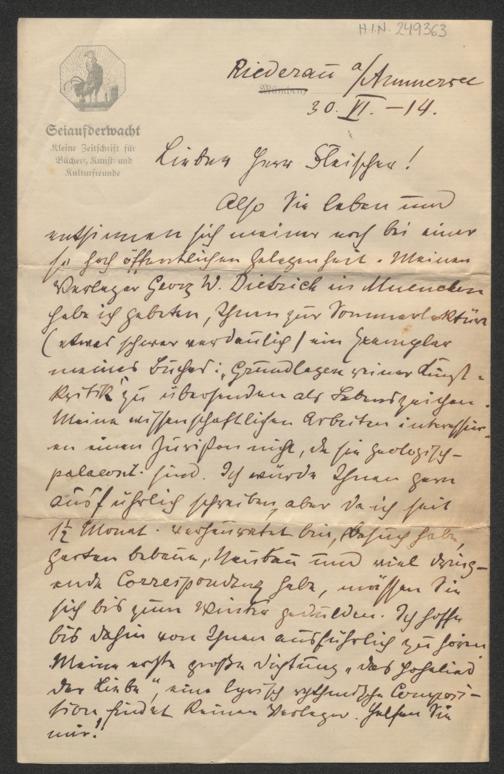 H.I.N. 249363
Seiaufderwacht
Kleine Zeitschrift für
Bücher, Kunst- und
Kulturfreunde
Riederau a/Ammersee
München
30. VI. –14.
Lieber Herr Fleischer!
Also Sie leben und
entsinnen sich meiner noch bei einer
so hoch öffentlichen Gelegenheit. Meinen
Verleger Georg W. Dietrich in Muenchen
habe ich gebeten, Ihnen zur Sommerlektüre
(etwas schwer verdaulich) ein Exemplar
meines Buches: „Grundlagen einer Kunst-
kritik" zu übersenden als Lebenszeichen.
Meine wissenschaftlichen Arbeiten interessier-
en einen Juristen nicht, da sie geologisch-
palaeont. sind. Ich würde Ihnen gern
ausführlich schreiben, aber da ich seit
1½ Monat. verheiratet bin, Besuch habe,
Garten bebaue, Neubau und viel dring-
ende Correspondenz habe, müssen Sie
sich bis zum Winter gedulden. Ich hoffe
bis dahin von Ihnen ausführlich zu hören.
Meine erste große Dichtung „das Hohelied
der Liebe", eine lyrisch rythmische Composi-
tion findet keinen Verleger. Helfen Sie
mir!